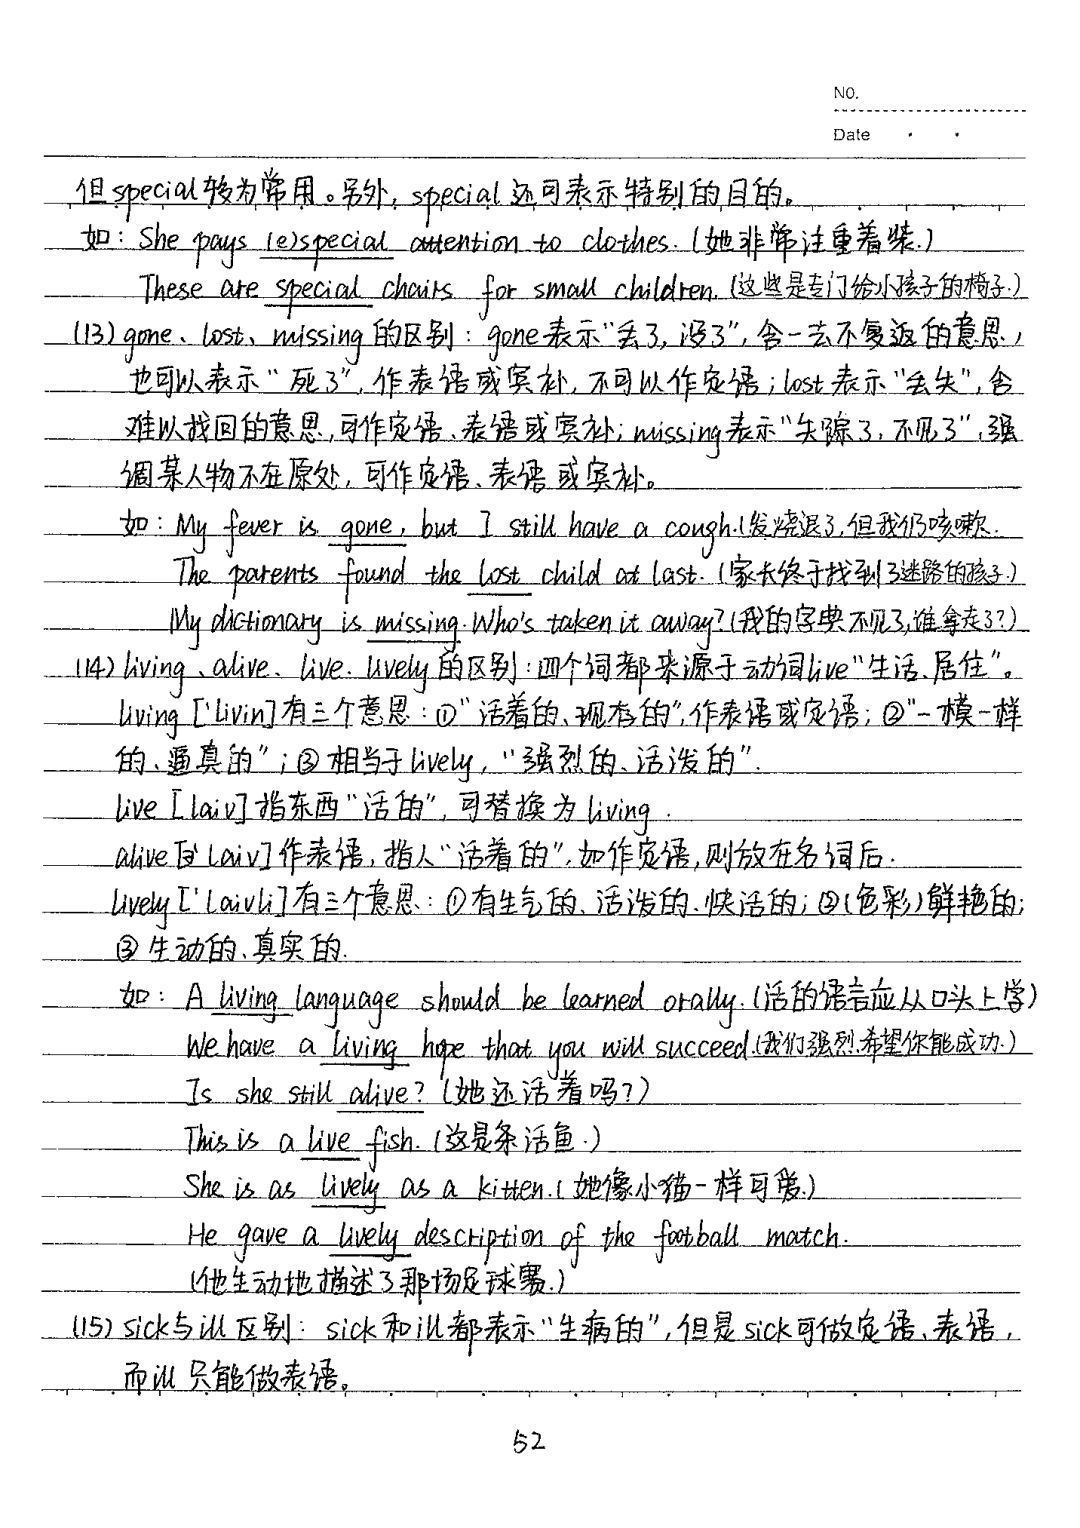 NO.
Date
但special较为常用。另外，special还可表示特别的目的。
如：She pays (e)special attention to clothes.(她非常注重着装.)
These are special chairs for small children.(这些是专门给小孩子的椅子.)
(13) gone、lost、missing的区别：gone表示“丢了,没了”,含一去不复返的意思,
也可以表示“死了”,作表语或宾补,不可以作定语；lost表示“丢失”,含
难以找回的意思,可作定语、表语或宾补；missing表示“失踪了,不见了”,强
调某人物不在原处,可作定语、表语或宾补。
如：My fever is gone, but I still have a cough.(发烧退了,但我仍咳嗽.
The parents found the lost child at last.(家长终于找到了迷路的孩子.)
My dictionary is missing. Who's taken it away?(我的字典不见了,谁拿走了?)
(14) living、alive、live、lively的区别：四个词都来源于动词live“生活、居住”。
living ['livin]有三个意思：①“活着的、现存的”,作表语或定语；②“一模一样
的、逼真的”；③相当于lively,“强烈的、活泼的”.
live [laiv]指东西“活的”,可替换为living.
alive [ə'laiv]作表语,指人“活着的”,如作定语,则放在名词后.
lively ['laivli]有三个意思：①有生气的、活泼的、快活的；②(色彩)鲜艳的；
③生动的、真实的.
如：A living language should be learned orally.(活的语言应从口头上学)
We have a living hope that you will succeed.(我们强烈希望你能成功.)
Is she still alive?(她还活着吗?)
This is a live fish.(这是条活鱼.)
She is as lively as a kitten.(她像小猫一样可爱.)
He gave a lively description of the football match.
(他生动地描述了那场足球赛.)
(15) sick与ill区别：sick和ill都表示“生病的”,但是sick可做定语、表语,
而ill只能做表语。
52